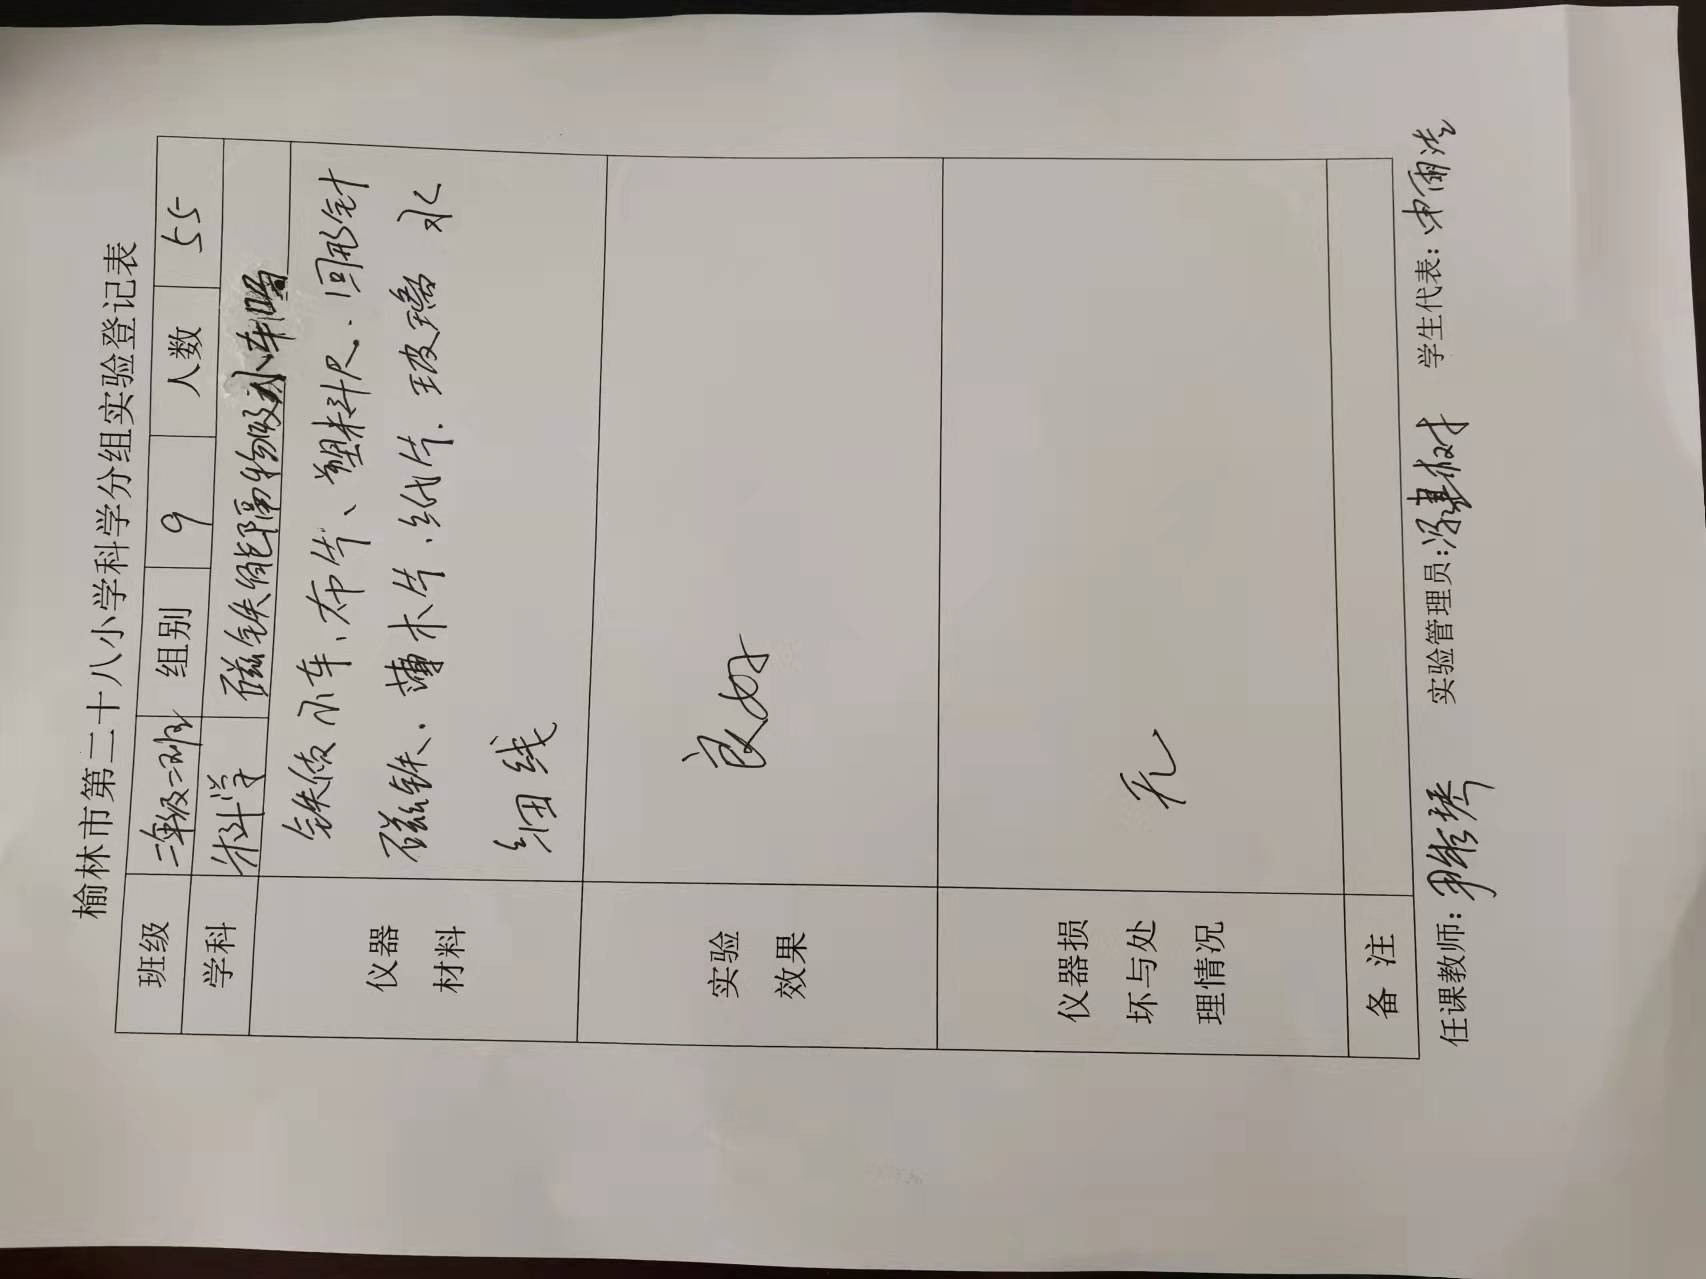 榆林市第二十八小学科学分组实验登记表
班级 二年级二班 组别 9 人数 55
学科 科学 磁铁能隔物吸小车吗
仪器材料
铁皮小车、布片、塑料尺、回形针
磁铁、薄木片、纸片、玻璃 水
细线
实验效果 良好
仪器损坏与处理情况 无
备 注
任课教师: 实验管理员: 学生代表: